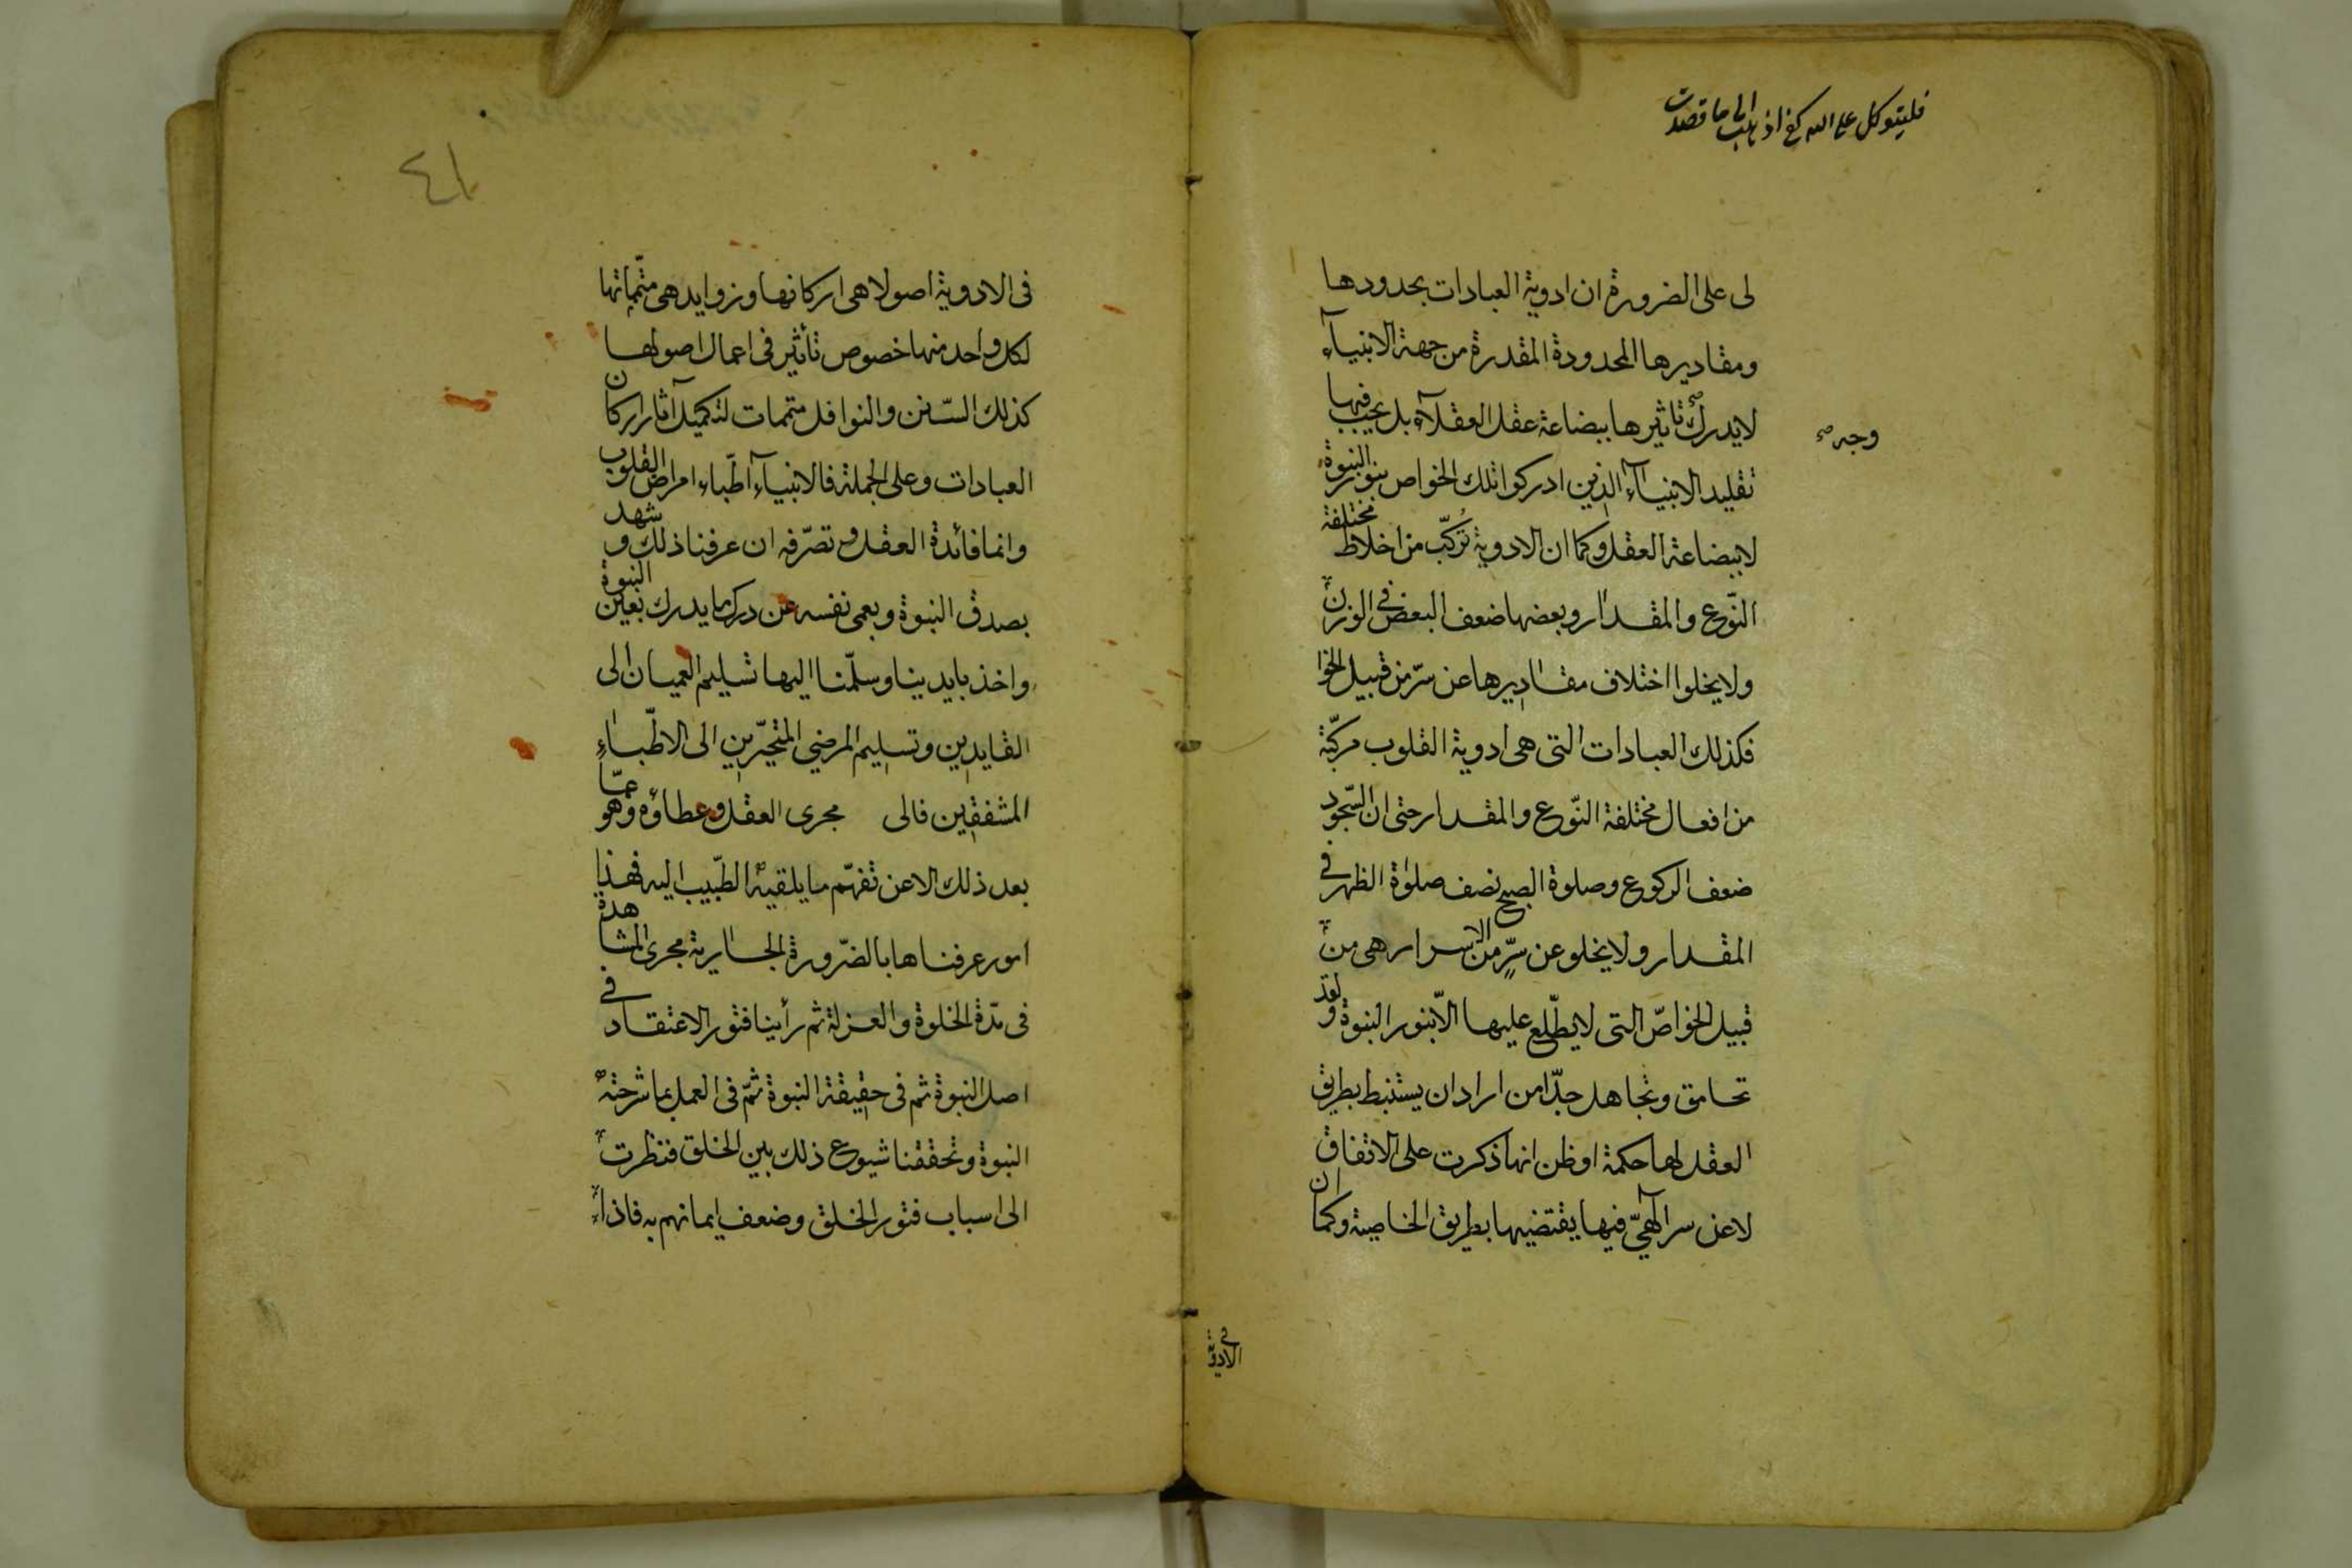 فليتوكل على الله كفى اذهب الى ما قصدت
لى على الضرورة ان ادوية العبادات بحدودها
ومقاديرها المحدودة المقدرة من جهة الانبيآء
لا يدرك تاثيرها ببضاعة عقل العقلآء بل يجب فيها
وجه صح
تقليد الانبيآء الذين ادركوا تلك الخواص بنور النبوة
لا ببضاعة العقل وكما ان الادوية تُركّب من اخلاط مختلفة
النّوع والمقدار وبعضها ضعف البعض فى الوزن
ولا يخلوا اختلاف مقاديرها عن سرّ من قبيل الخوا
فكذلك العبادات التى هى ادوية القلوب مركّبة
من افعال مختلفة النّوع والمقدار حتى ان السّجود
ضعف الركوع وصلوة الصبح نصف صلوة الظهر فى
المقدار ولا يخلو عن سرٍّ من الاسرار هى من
قبيل الخواصّ التى لا يطّلع عليها الاّ بنور النبوة ولقد
تحامق وتجاهل جدّا من اراد ان يستنبط بطريق
العقل لها حكمة او ظن انها ذكرت على الاتفاق
لا عن سر الٓهىّ فيها يقتضيها بطريق الخاصية وكما ان
فى الادوية
٤١
فى الادوية اصولا هى اركانها وزوايد هى متمّماتها
لكل واحد منها خصوص تأثير فى اعمال اصولها
كذلك السّنن والنوافل متممات لتكميل آثار اركان
العبادات وعلى الجملة فالانبيآء اطّباء امراض القلوب
وانما فائدة العقل وتصرّفه ان عرفنا ذلك وشهد
بصدق النبوة وبعمى نفسه عن درك ما يدرك بعين النبوة
واخذ بايدينا وسلّمنا اليها تسليم العميان الى
القايدين وتسليم المرضى المتحيّرين الى الاطّباء
المشفقين فالى مجرى العقل وعطاؤه وهو عمّا
بعد ذلك الا عن تفهّم ما يلقيه الطّبيب اليه فهذا
امور عرفناها بالضّرورة الجارية مجرى المشاهدة
فى مدّة الخلوة والعزلة ثم رأينا فتور الاعتقاد فى
اصل النبوة ثم فى حقيقة النبوة ثمّ فى العمل بما شرحته
النبوة وتحققنا شيوع ذلك بين الخلق فنظرت
الى اسباب فتور الخلق وضعف ايمانهم به فاذا